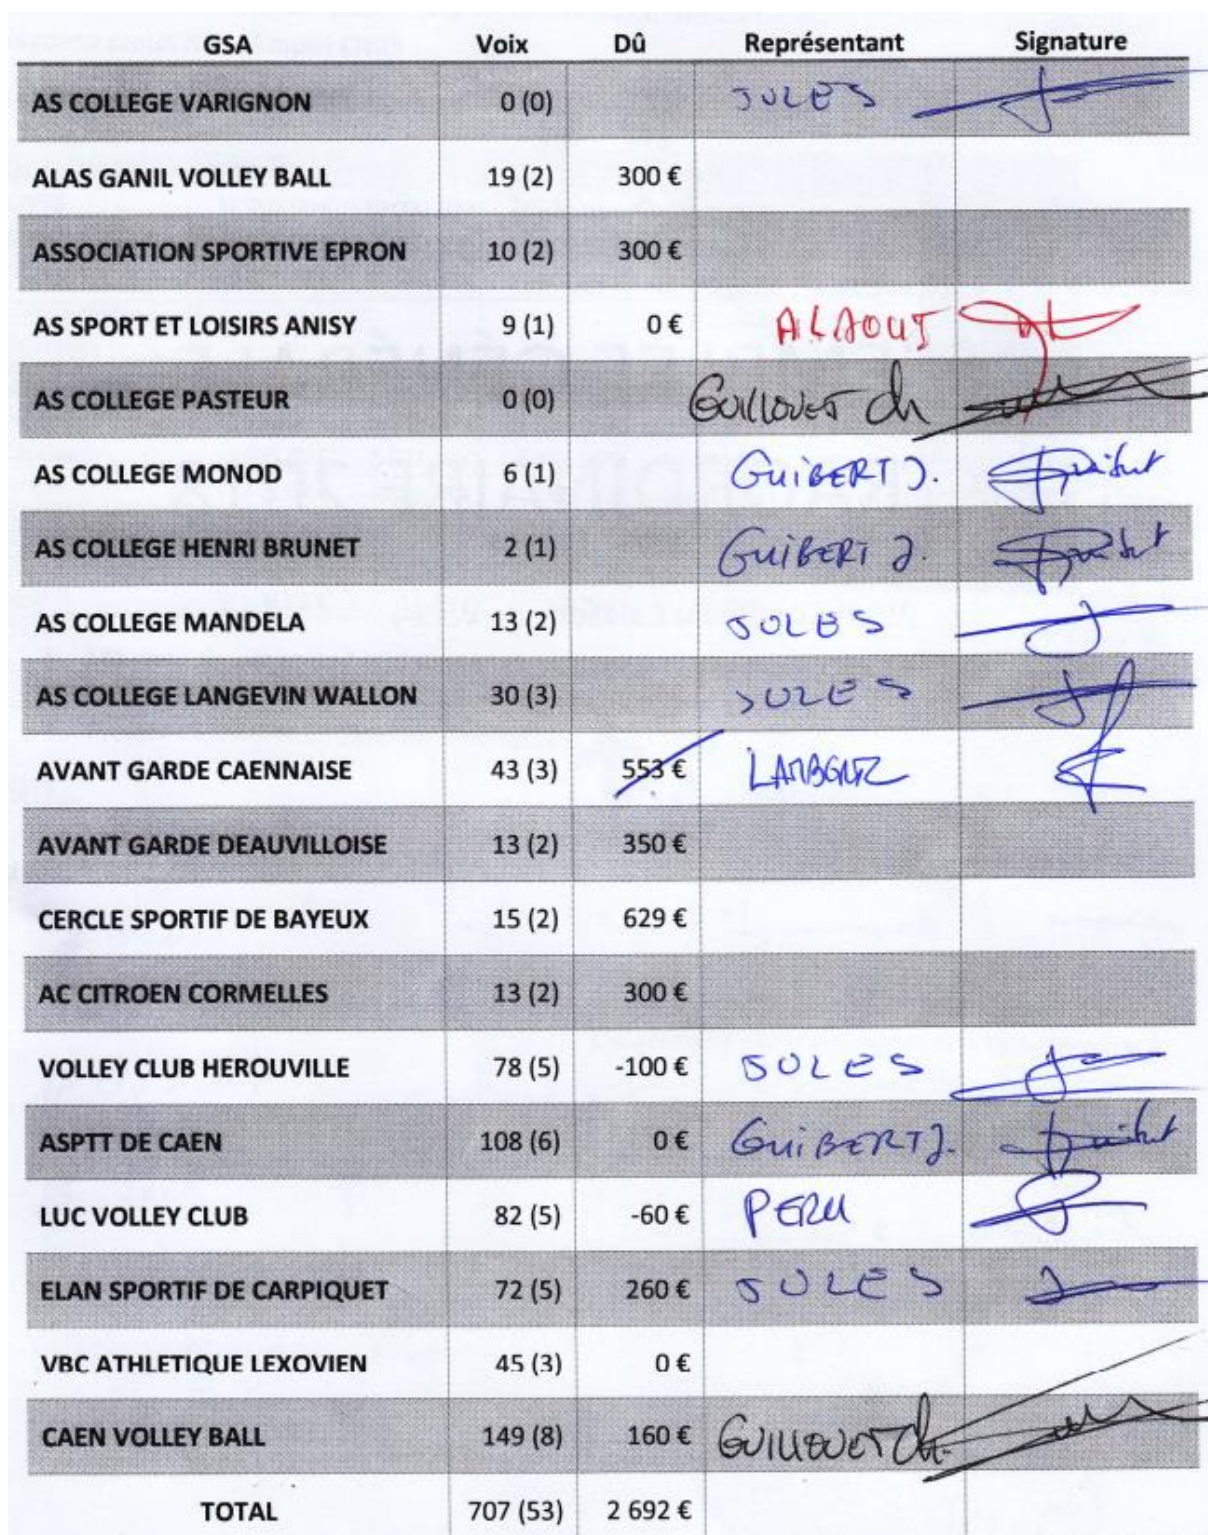 GSA Voix Dû Représentant Signature
AS COLLEGE VARIGNON 0 (0) JULES
ALAS GANIL VOLLEY BALL 19 (2) 300 €
ASSOCIATION SPORTIVE EPRON 10 (2) 300 €
AS SPORT ET LOISIRS ANISY 9 (1) 0 € ALAOUI
AS COLLEGE PASTEUR 0 (0) GUILLOUET Ch
AS COLLEGE MONOD 6 (1) GUIBERT J.
AS COLLEGE HENRI BRUNET 2 (1) GUIBERT J.
AS COLLEGE MANDELA 13 (2) JULES
AS COLLEGE LANGEVIN WALLON 30 (3) JULES
AVANT GARDE CAENNAISE 43 (3) 553 €
AVANT GARDE DEAUVILLOISE 13 (2) 350 €
CERCLE SPORTIF DE BAYEUX 15 (2) 629 €
AC CITROEN CORMELLES 13 (2) 300 €
VOLLEY CLUB HEROUVILLE 78 (5) -100 € JULES
ASPTT DE CAEN 108 (6) 0 € GUIBERT J.
LUC VOLLEY CLUB 82 (5) -60 € PERU
ELAN SPORTIF DE CARPIQUET 72 (5) 260 € JULES
VBC ATHLETIQUE LEXOVIEN 45 (3) 0 €
CAEN VOLLEY BALL 149 (8) 160 € GUILLOUET Ch.
TOTAL 707 (53) 2 692 €